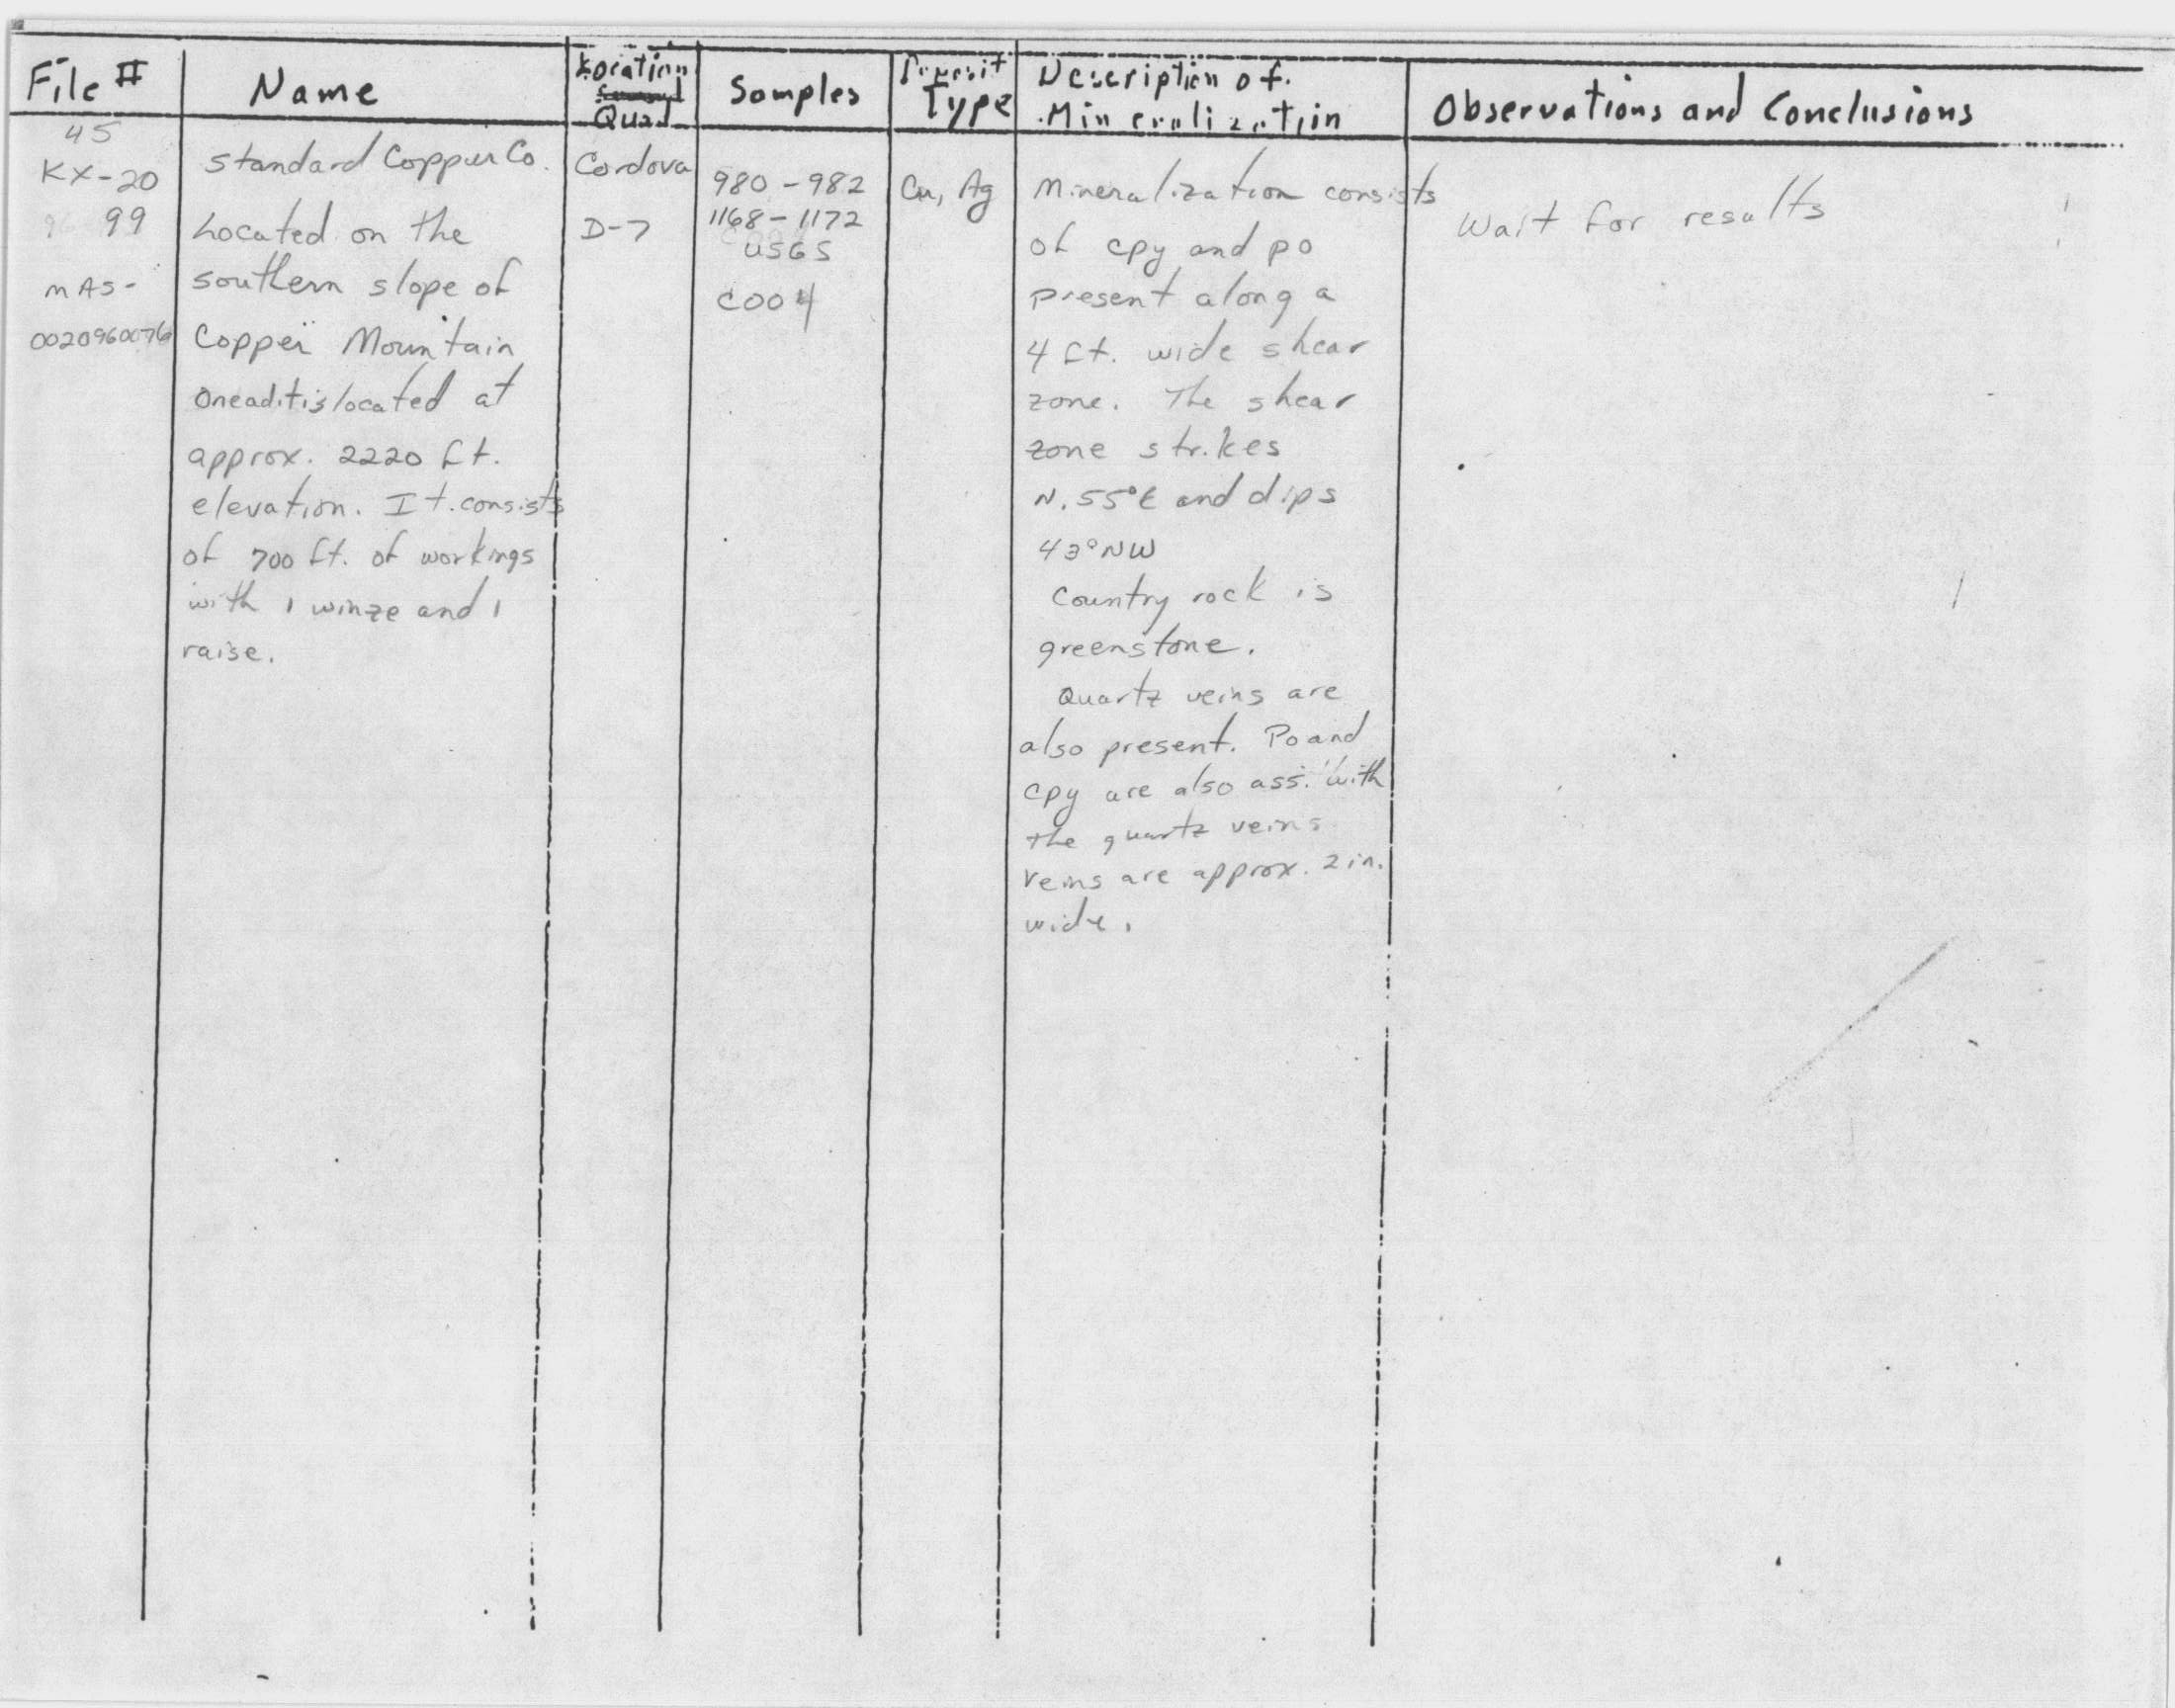 File #
Name
Location
Quad
Samples
Deposit
Type
Description of
Mineralization
Observations and Conclusions
45
KX-20
99
MAS-
0020960076
Standard Copper Co.
Located on the
southern slope of
Copper Mountain
One adit is located at
approx. 2220 ft.
elevation. It consists
of 700 ft. of workings
with 1 winze and 1
raise.
Cordova
D-7
980-982
1168-1172
USGS
C004
Cu, Ag
Mineralization consists
of cpy and po
present along a
4 ft. wide shear
zone. The shear
zone strikes
N. 55°E and dips
43°NW
Country rock is
greenstone.
Quartz veins are
also present. Po and
cpy are also ass. with
the quartz veins
veins are approx. 2 in.
wide.
Wait for results